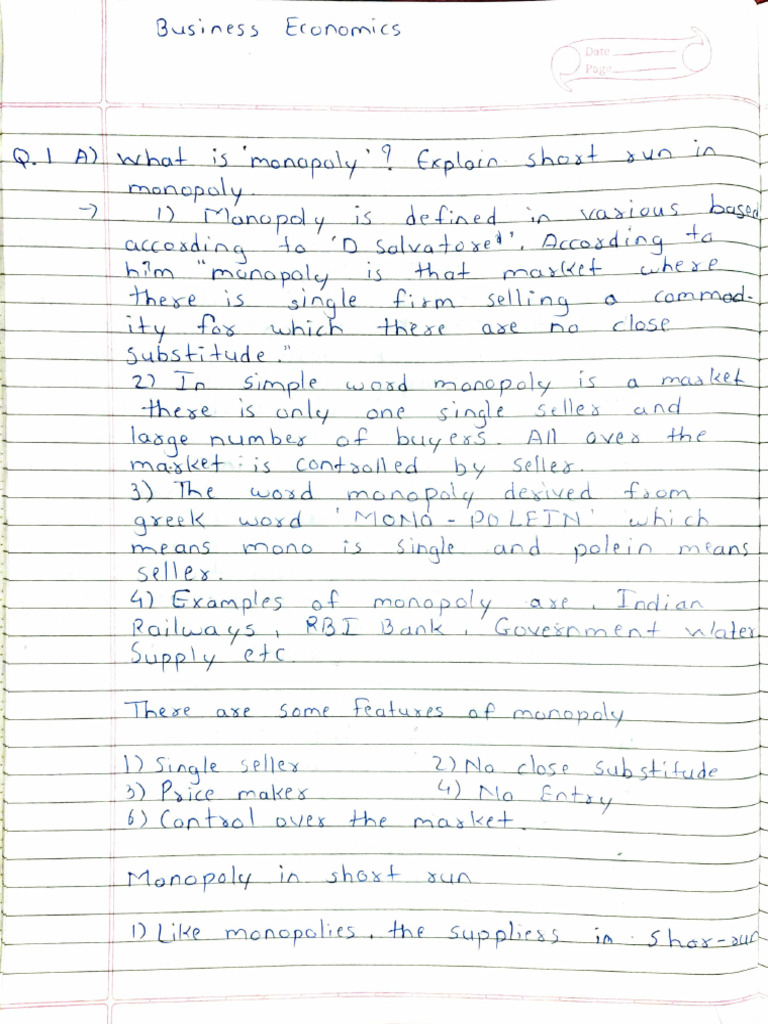 Business Economics
Date
Page
Q.1 A) What is 'monopoly'? Explain short run in
monopoly.
→ 1) Monopoly is defined in various based
according to 'D Salvatore'. According to
him "monopoly is that market where
there is single firm selling a commod-
ity for which there are no close
substitude."
2) In simple word monopoly is a market
there is only one single seller and
large number of buyers. All over the
market is controlled by seller.
3) The word monopoly derived from
greek word 'MONO - POLEIN' which
means mono is single and polein means
seller.
4) Examples of monopoly are, Indian
Railways, RBI Bank, Government Water
Supply etc.
There are some features of monopoly
1) Single seller 2) No close substitude
3) Price maker 4) No Entry
6) Control over the market.
Monopoly in short run
1) Like monopolies, the suppliers in shor-run